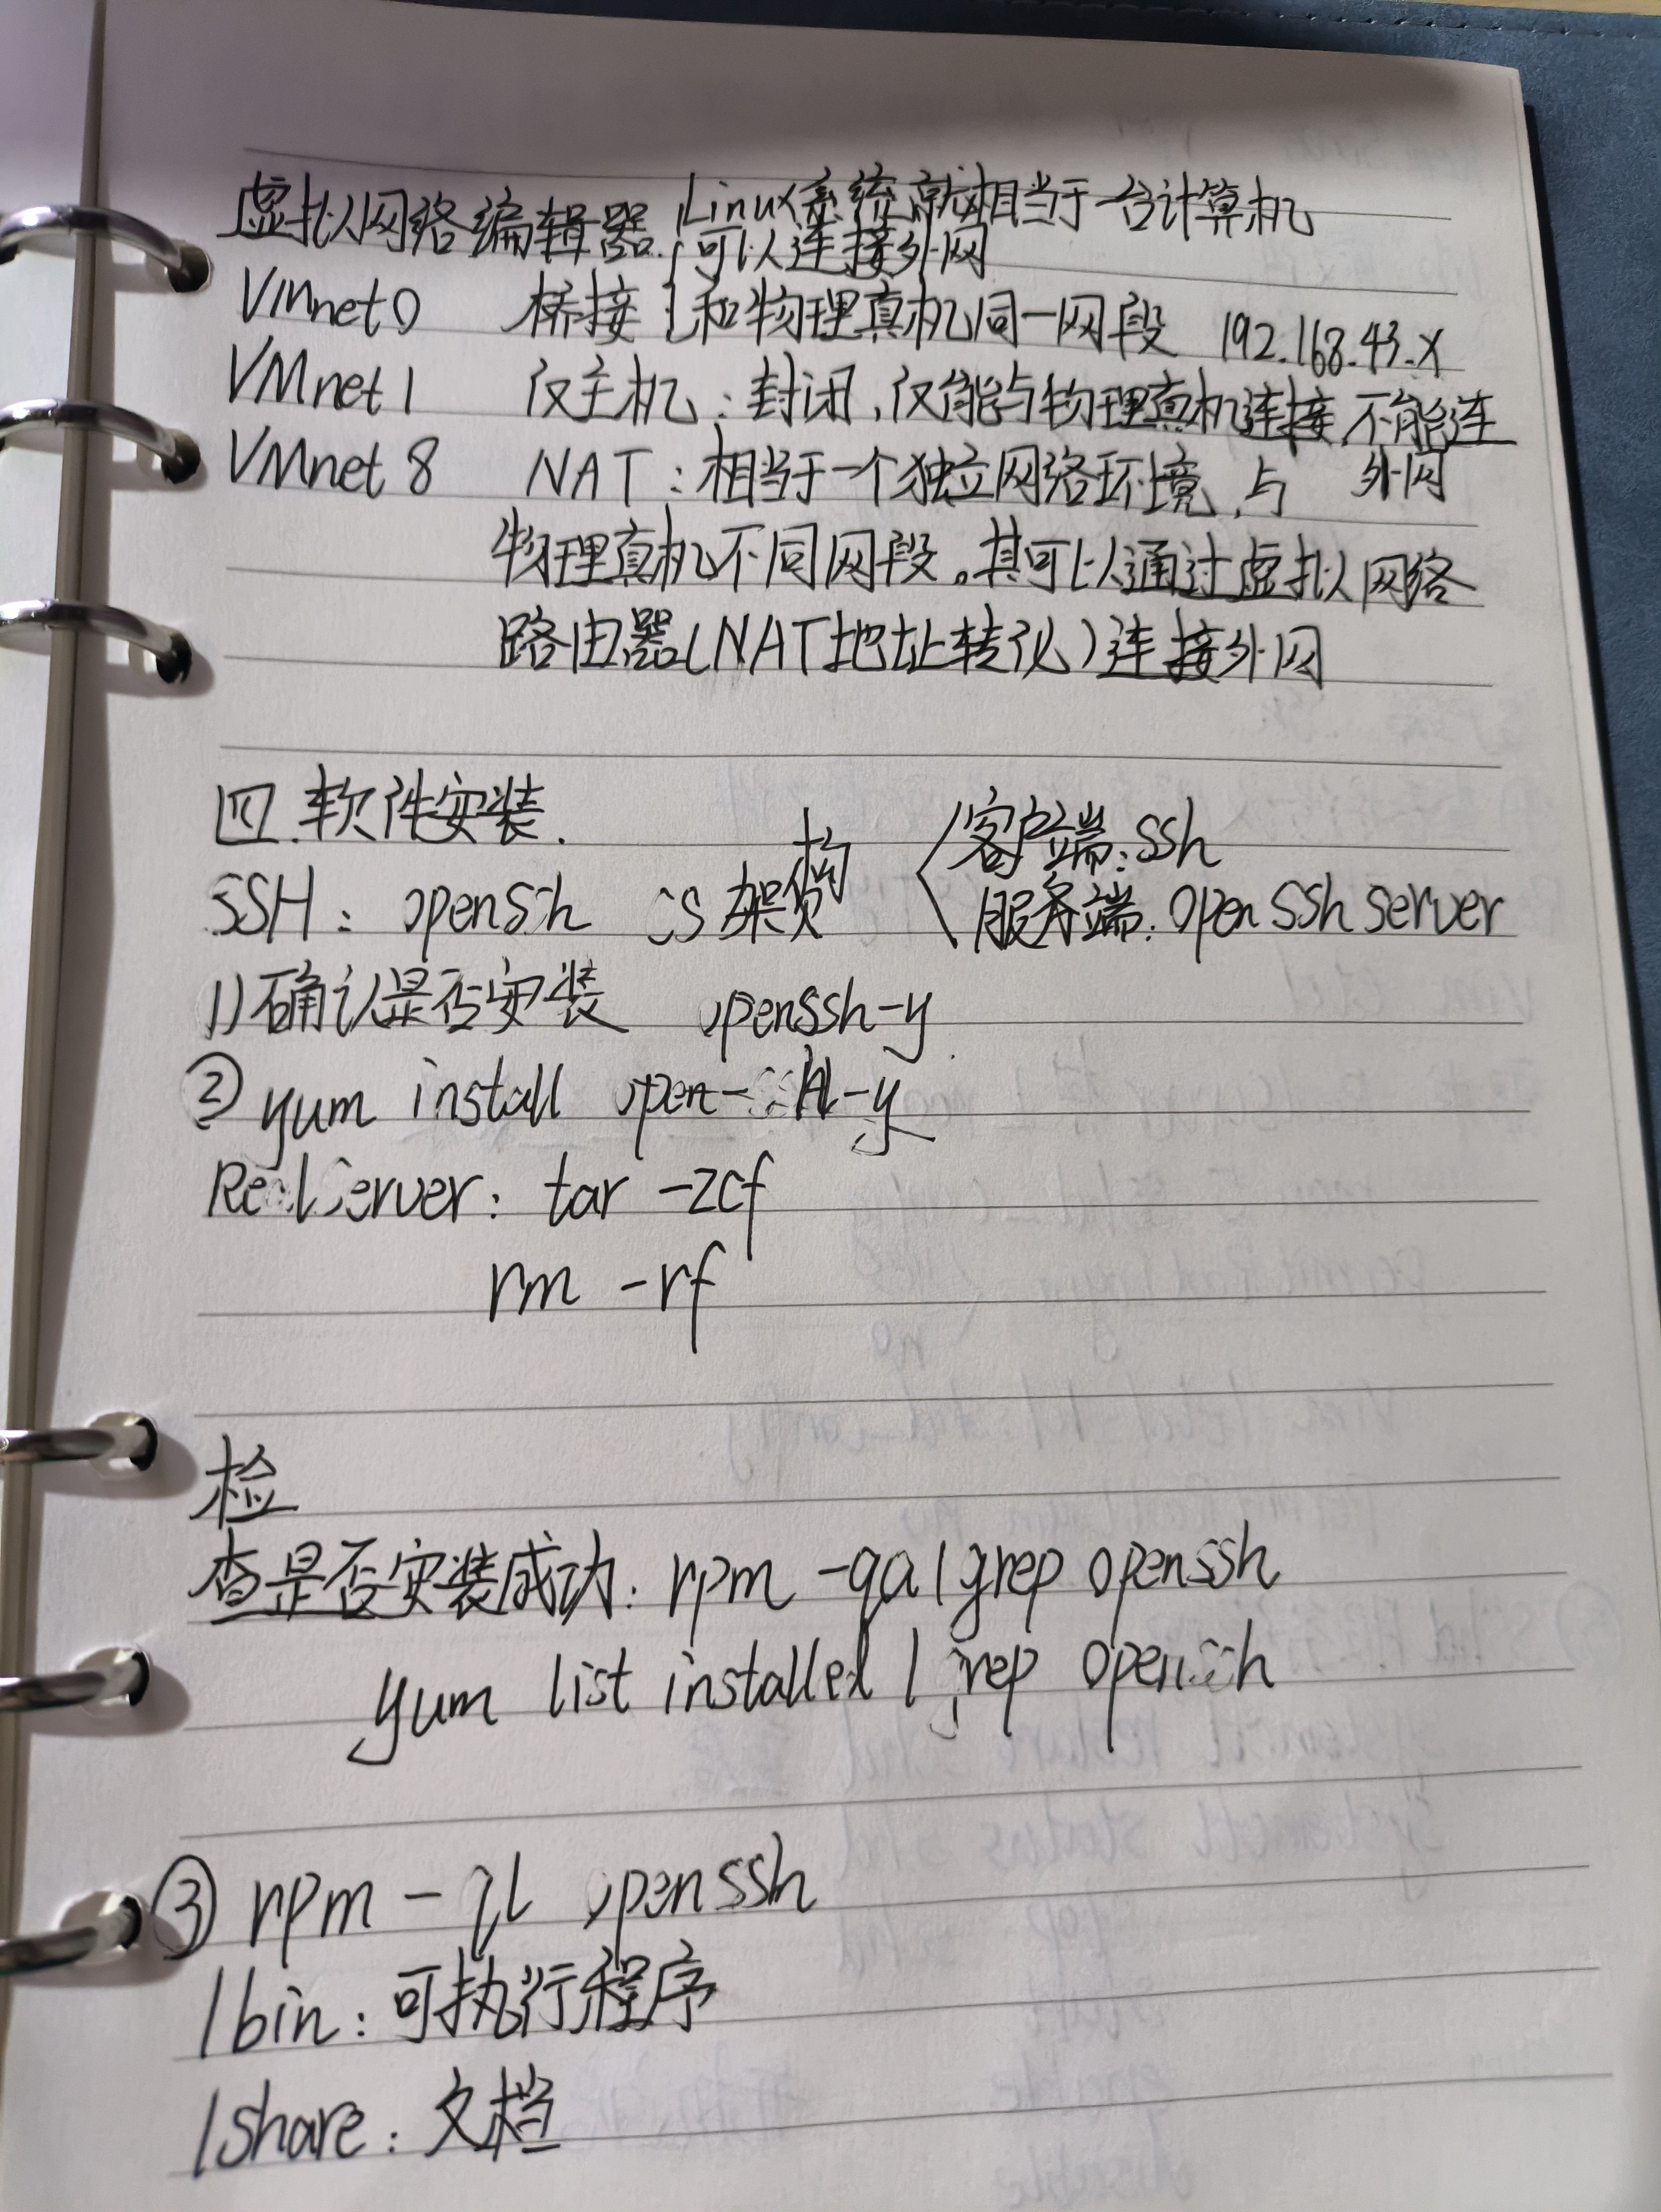 虚拟网络编辑器. {Linux系统就相当于一台计算机
可以连接外网
VMnet0 桥接 和物理真机同一网段 192.168.43.x
VMnet1 仅主机：封闭,仅能与物理真机连接,不能连
外网
VMnet8 NAT：相当于一个独立网络环境,与
物理真机不同网段。其可以通过虚拟网络
路由器(NAT地址转化)连接外网
四.软件安装.
客户端:ssh
SSH： openssh cs架构 服务端:openssh server
1)确认是否安装 openssh-y
② yum install open-ssh-y
RealServer: tar -zcf
rm -rf
检
查是否安装成功: rpm -qa | grep openssh
yum list installed | grep openssh
③ rpm -ql openssh
/bin: 可执行程序
/share: 文档